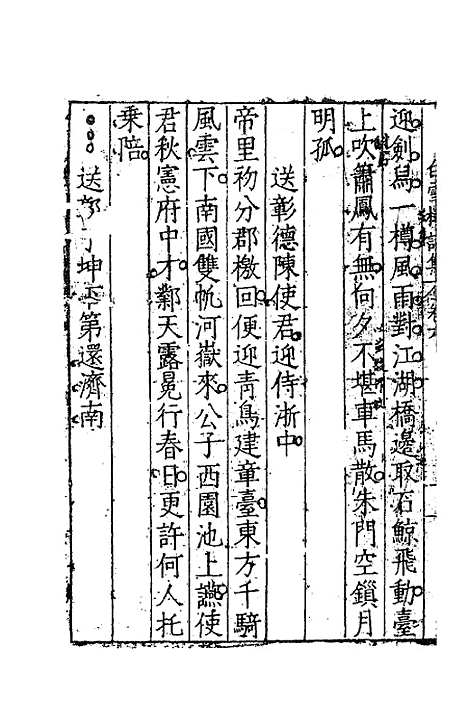 迎劍舄一樽風雨對江湖橋邊取石鯨飛動臺
上吹簫鳳有無何夕不堪車馬散朱門空鎖月
明孤
送彰德陳使君迎侍浙中
帝里初分郡檄回便迎青鳥建章臺東方千騎
風雲下南國雙帆河嶽來公子西園池上讌使
君秋憲府中才鄴天露冕行春日更許何人托
乗陪
送 坤 第還濟南